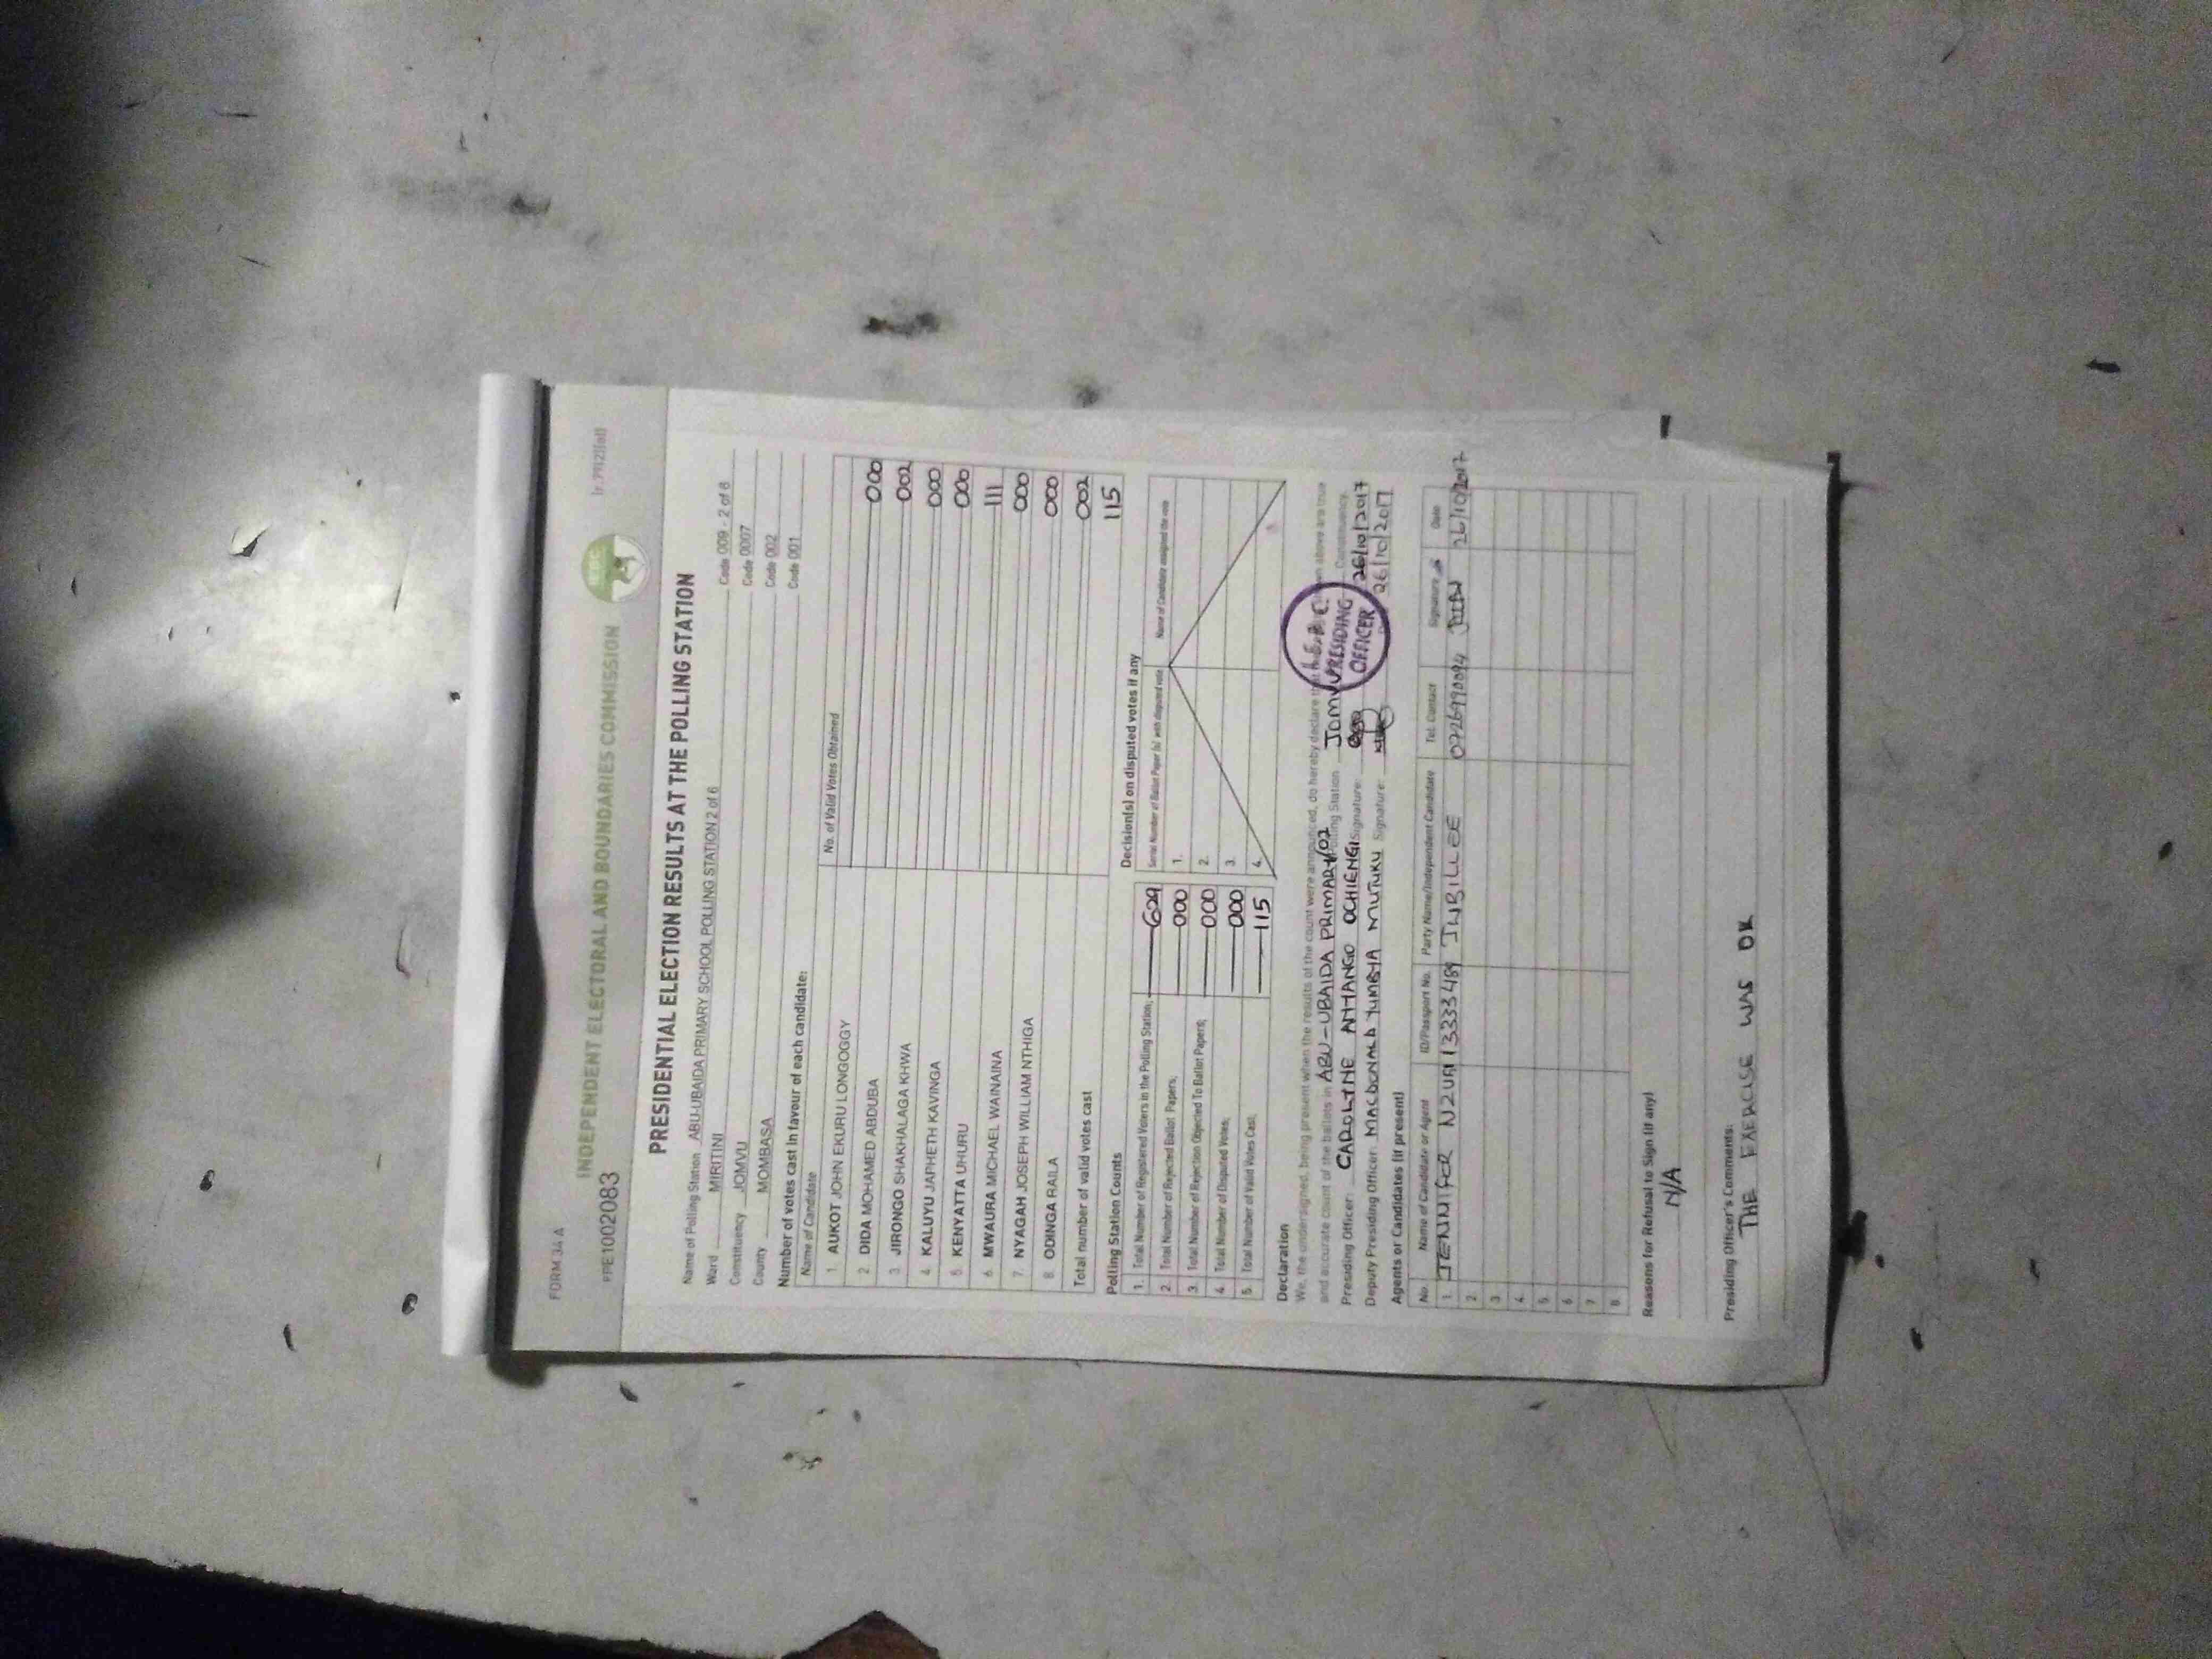 FORM 34 A
INDEPENDENT ELECTORAL AND BOUNDARIES COMMISSION
IEBC
PPE1002083
PRESIDENTIAL ELECTION RESULTS AT THE POLLING STATION
Name of Polling Station ABU-UBAIDA PRIMARY SCHOOL POLLING STATION 2 of 6 Code 009 - 2 of 6
Ward MIRITINI Code 0007
Constituency JOMVU Code 002
County MOMBASA Code 001
Number of votes cast in favour of each candidate:
Name of Candidate No. of Valid Votes Obtained
1. AUKOT JOHN EKURU LONGOGGY 000
2 DIDA MOHAMED ABDUBA 002
3 JIRONGO SHAKHALAGA KHWA 000
4 KALUYU JAPHETH KAVINGA 000
5 KENYATTA UHURU 111
6 MWAURA MICHAEL WAINAINA 000
7. NYAGAH JOSEPH WILLIAM NTHIGA 000
8 ODINGA RAILA 002
Total number of valid votes cast 115
Polling Station Counts
1. Total Number of Registered Voters in the Polling Station; 629
2. Total Number of Rejected Ballot Papers; 000
3. Total Number of Rejection Objected To Ballot Papers; 000
4. Total Number of Disputed Votes; 000
5. Total Number of Valid Votes Cast; 115
Decision(s) on disputed votes if any
Serial Number of Ballot Paper (s) with disputed vote Name of Candidate assigned the vote
1.
2.
3.
4.
Declaration
We, the undersigned, being present when the results of the count were announced, do hereby declare that the above are true
and accurate count of the ballots in ABU-UBAIDA PRIMARY/02 Polling Station JOMVU Constituency.
Presiding Officer: CAROLYNE ATIANGO OCHIENG Signature: 26/10/2017
Deputy Presiding Officer: MACDONALD YUMBYA MUTUKU Signature: 26/10/2017
PRESIDING
OFFICER
Agents or Candidates (if present)
No. Name of Candidate or Agent ID/Passport No. Party Name/Independent Candidate Tel. Contact Signature Date
1. JENNIFER NZUAI 13333489 JUBILEE 0726990094 26/10/2017
2
3
4
5
6
7
8
Reasons for Refusal to Sign (if any)
N/A
Presiding Officer's Comments:
THE EXERCISE WAS OK